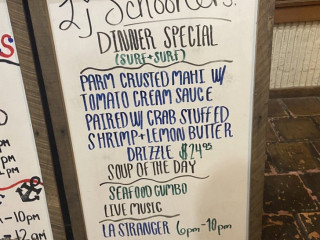 LJ Schooners.
DINNER SPECIAL
(SURF + SURF)
PARM CRUSTED MAHI W/
TOMATO CREAM SAUCE
PAIRED W/ CRAB STUFFED
SHRIMP + LEMON BUTTER
DRIZZLE $24.95
SOUP OF THE DAY
SEAFOOD GUMBO
LIVE MUSIC
LA STRANGER 6pm-10pm